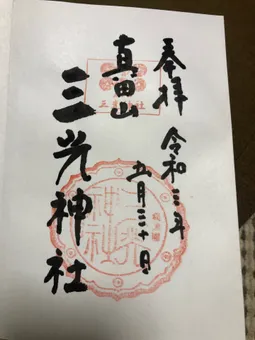 奉拝
令和三年
五月三十日
真田山
三光神社
三光神社